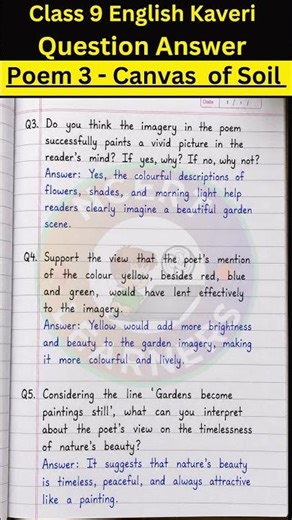 Class 9 English Kaveri
Question Answer
Poem 3 - Canvas of Soil
Date
Q3. Do you think the imagery in the poem
successfully paints a vivid picture in the
reader's mind? If yes, why? If no, why not?
Answer: Yes, the colourful descriptions of
flowers, shades, and morning light help
readers clearly imagine a beautiful garden
scene.
Q4. Support the view that the poet's mention
of the colour yellow, besides red, blue
and green, would have lent effectively
to the imagery.
Answer: Yellow would add more brightness
and beauty to the garden imagery, making
it more colourful and lively.
Q5. Considering the line 'Gardens become
paintings still', what can you interpret
about the poet's view on the timelessness
of nature's beauty?
Answer: It suggests that nature's beauty
is timeless, peaceful, and always attractive
like a painting.